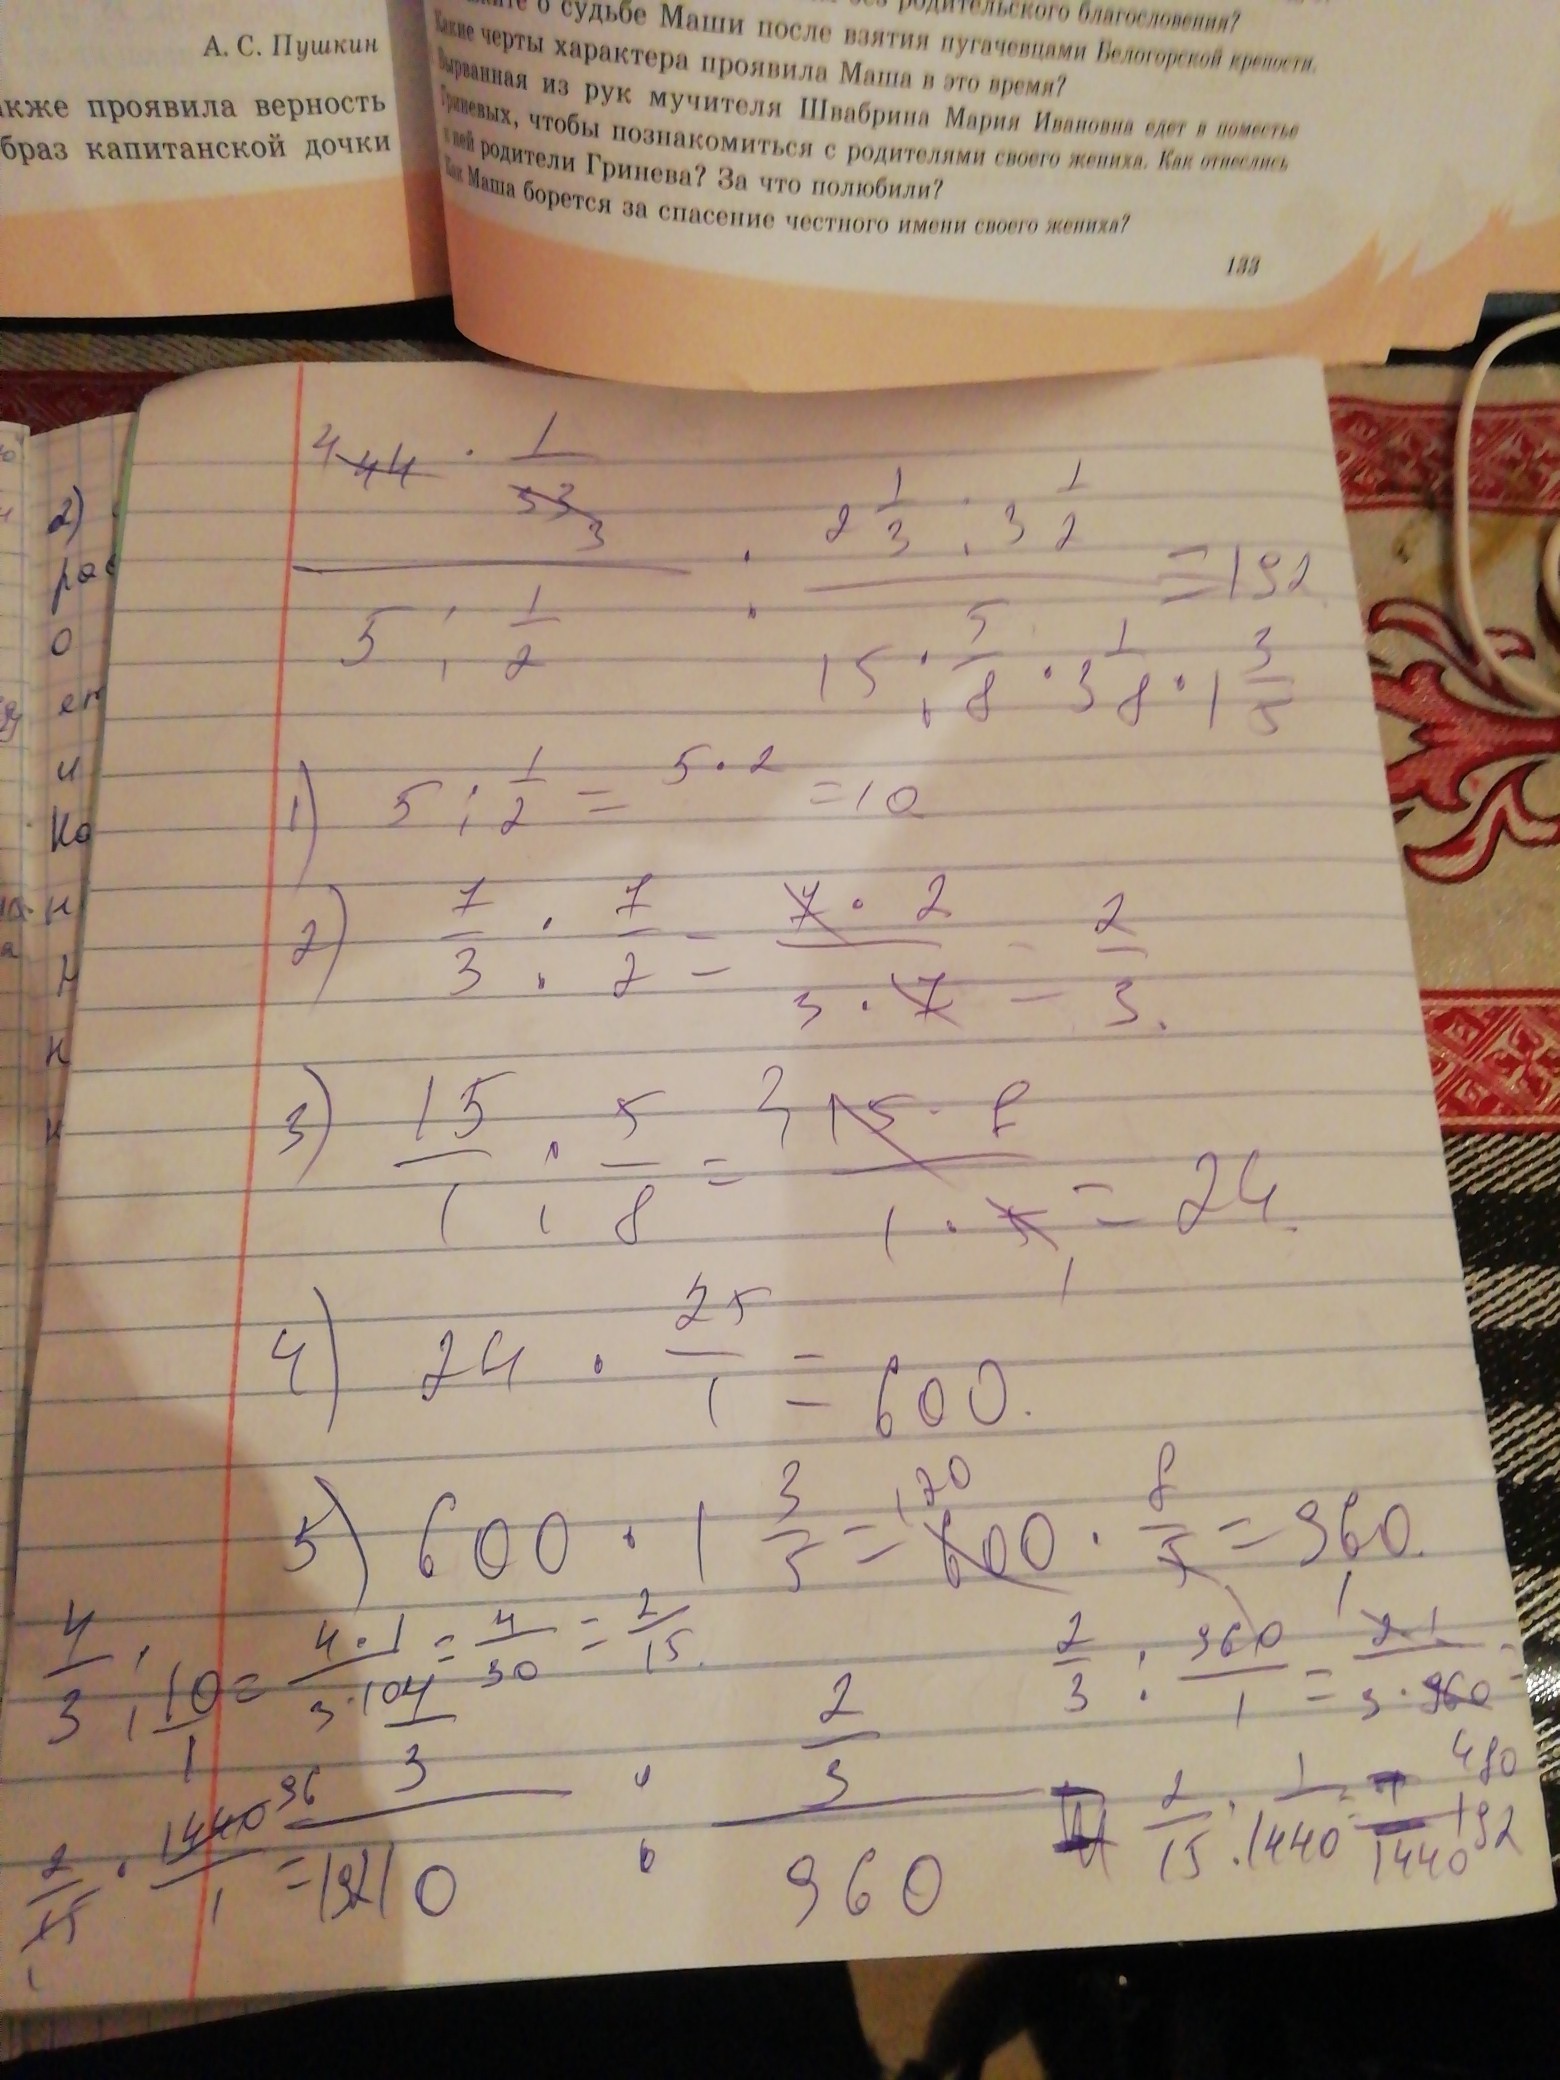 А. С. Пушкин
акже проявила верность
браз капитанской дочки
родительского благословения?
о судьбе Маши после взятия пугачевцами Белогорской крепости.
Какие черты характера проявила Маша в это время?
Вырванная из рук мучителя Швабрина Мария Ивановна едет в поместье
Гриневых, чтобы познакомиться с родителями своего жениха. Как отнеслись
к ней родители Гринева? За что полюбили?
Как Маша борется за спасение честного имени своего жениха?
133
4 44 · 1/33 3
2 1/3 : 3 1/2
5 : 1/2
:
15 : 5/8 · 3 1/8 · 1 3/5
= 192
1) 5 : 1/2 = 5 · 2 = 10
2) 7/3 : 7/2 = 7 · 2 / 3 · 7 = 2/3.
3) 15/1 : 5/8 = 3 15 · 8 / 1 · 5 1 = 24.
4) 24 · 25/1 = 600.
5) 600 · 1 3/5 = 120 600 · 8/5 1 = 960.
4/3 : 10/1 = 4 · 1 / 3 · 10 = 4/30 = 2/15.
2/3 : 960/1 = 2 · 1 / 3 · 960 =
480
4/3 / 10 : 2/3 / 960
2/15 : 1/1440 = 192
2/15 1 · 1440 96 / 1 = 192
2)
рас
о
ет
и
Ко
н
н
н
н